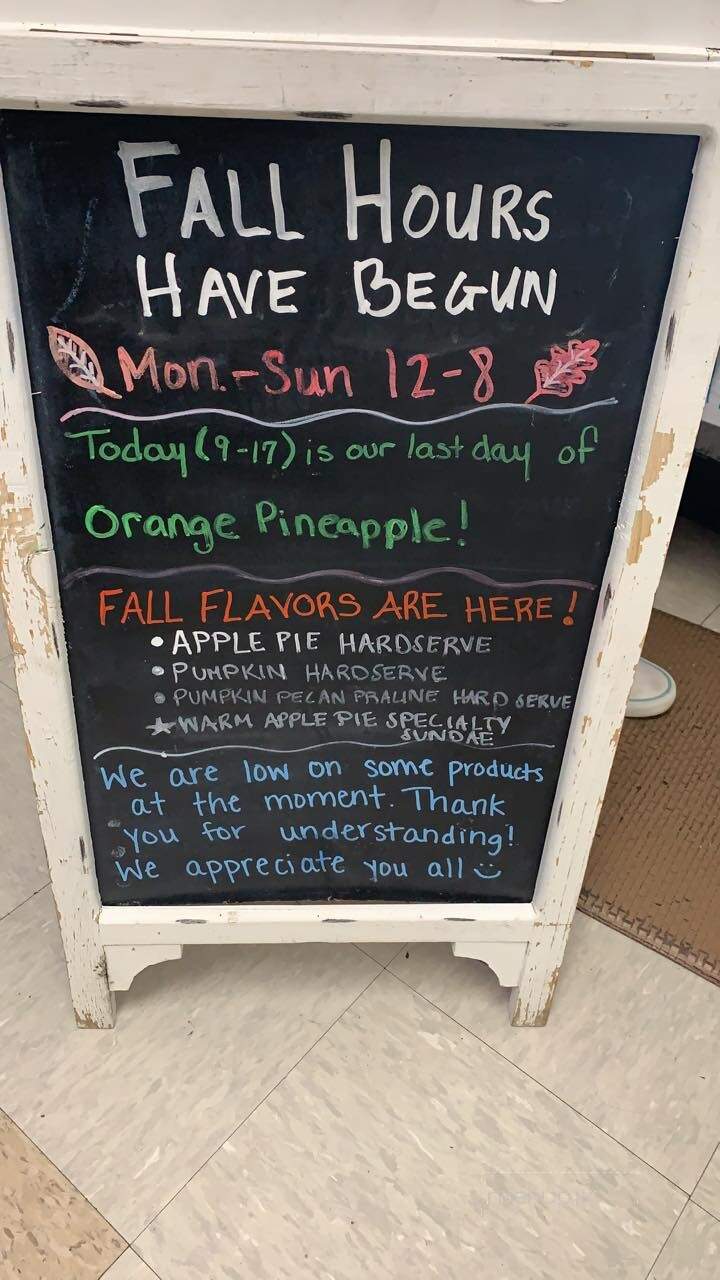 FALL HOURS
HAVE BEGUN
Mon.-Sun 12-8
Today (9-17) is our last day of
Orange Pineapple!
FALL FLAVORS ARE HERE!
• APPLE PIE HARDSERVE
• PUMPKIN HARDSERVE
• PUMPKIN PECAN PRALINE HARD SERVE
★ WARM APPLE PIE SPECIALTY
SUNDAE
We are low on some products
at the moment. Thank
you for understanding!
We appreciate you all :)